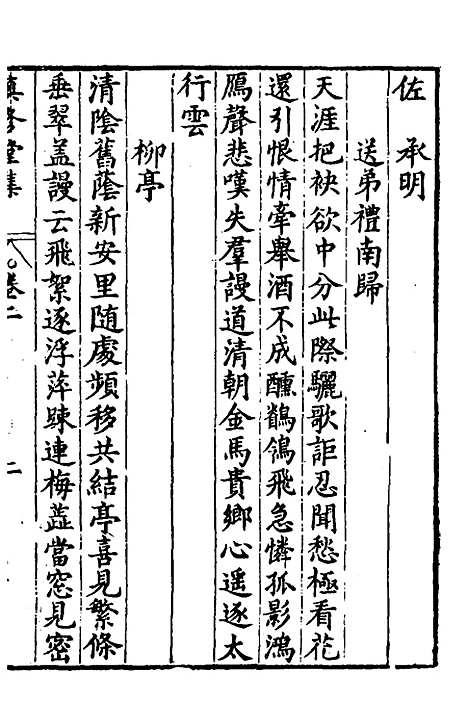 佐承明
送弟禮南歸
天涯把袂欲中分此際驪歌詎忍聞愁極看花
還引恨情牽舉酒不成醺鶺鴒飛急憐孤影鴻
鴈聲悲嘆失羣謾道清朝金馬貴鄉心遥逐太
行雲
柳亭
清陰舊蔭新安里随處頻移共結亭喜見繁條
垂翠盖謾云飛絮逐浮萍踈連梅蕋當窓見密
堂集
卷二
二